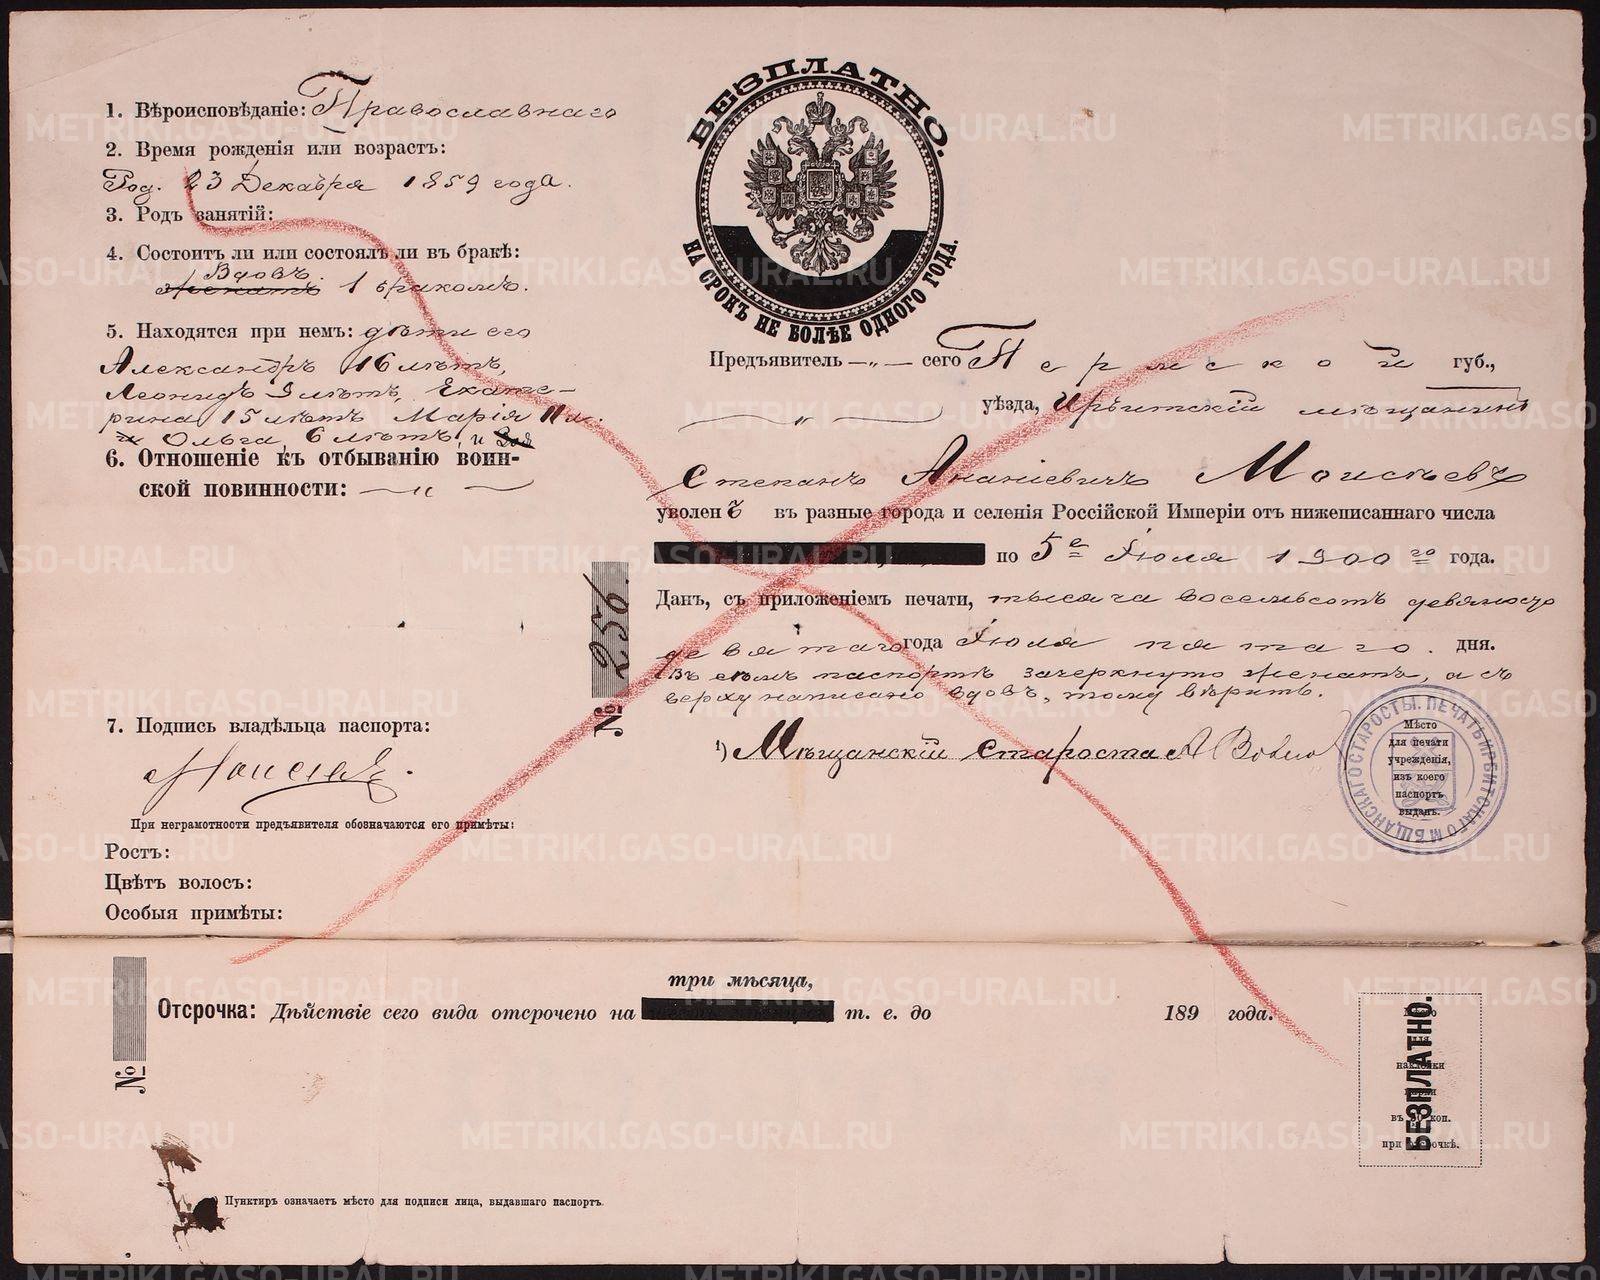 БЕЗПЛАТНО.
НА СРОКЪ НЕ БОЛѢЕ ОДНОГО ГОДА.
1. Вѣроисповѣданіе: Православнаго
2. Время рожденія или возрастъ:
Род. 23 Декабря 1859 года.
3. Родъ занятій:
4. Состоитъ ли или состоялъ ли въ бракѣ:
Вдовъ.
женатъ 1 бракомъ.
5. Находятся при немъ: дѣти его
Александръ 16 лѣтъ,
Леонидъ 9 лѣтъ, Екате-
рина 15 лѣтъ Марія 11 л.
Ольга, 6 лѣтъ, и
6. Отношеніе къ отбыванію воин-
ской повинности: — „ —
7. Подпись владѣльца паспорта:
Моисѣев
При неграмотности предъявителя обозначаются его примѣты:
Ростъ:
Цвѣтъ волосъ:
Особыя примѣты:
Предъявитель — „ — сего Пермской губ.,
— „ — уѣзда, Ирбитскій мѣщанинъ
Степанъ Ананіевичъ Моисѣевъ
уволенъ въ разные города и селенія Россійской Имперіи отъ нижеписаннаго числа
по 5е Іюля 1900го года.
Данъ, съ приложеніемъ печати, тысяча восемьсотъ девяносто
девятаго года Іюля пятаго. дня.
Въ семъ паспортѣ зачеркнуто женатъ, а с
верху написано вдовъ, тому вѣрить.
¹) Мѣщанскій Староста А
№ 256.
ПЕЧАТЬ ИРБИТСКАГО МѢЩАНСКАГО СТАРОСТЫ.
Мѣсто
для печати
учрежденія,
изъ коего
паспортъ
выданъ.
№
три мѣсяца,
Отсрочка: Дѣйствіе сего вида отсрочено на т. е. до 189 года.
БЕЗПЛАТНО.
Мѣсто
для
наклейки
марки
коп.
при отсрочкѣ.
¹) Пунктиръ означаетъ мѣсто для подписи лица, выдавшаго паспортъ.
METRIKI.GASO-URAL.RU